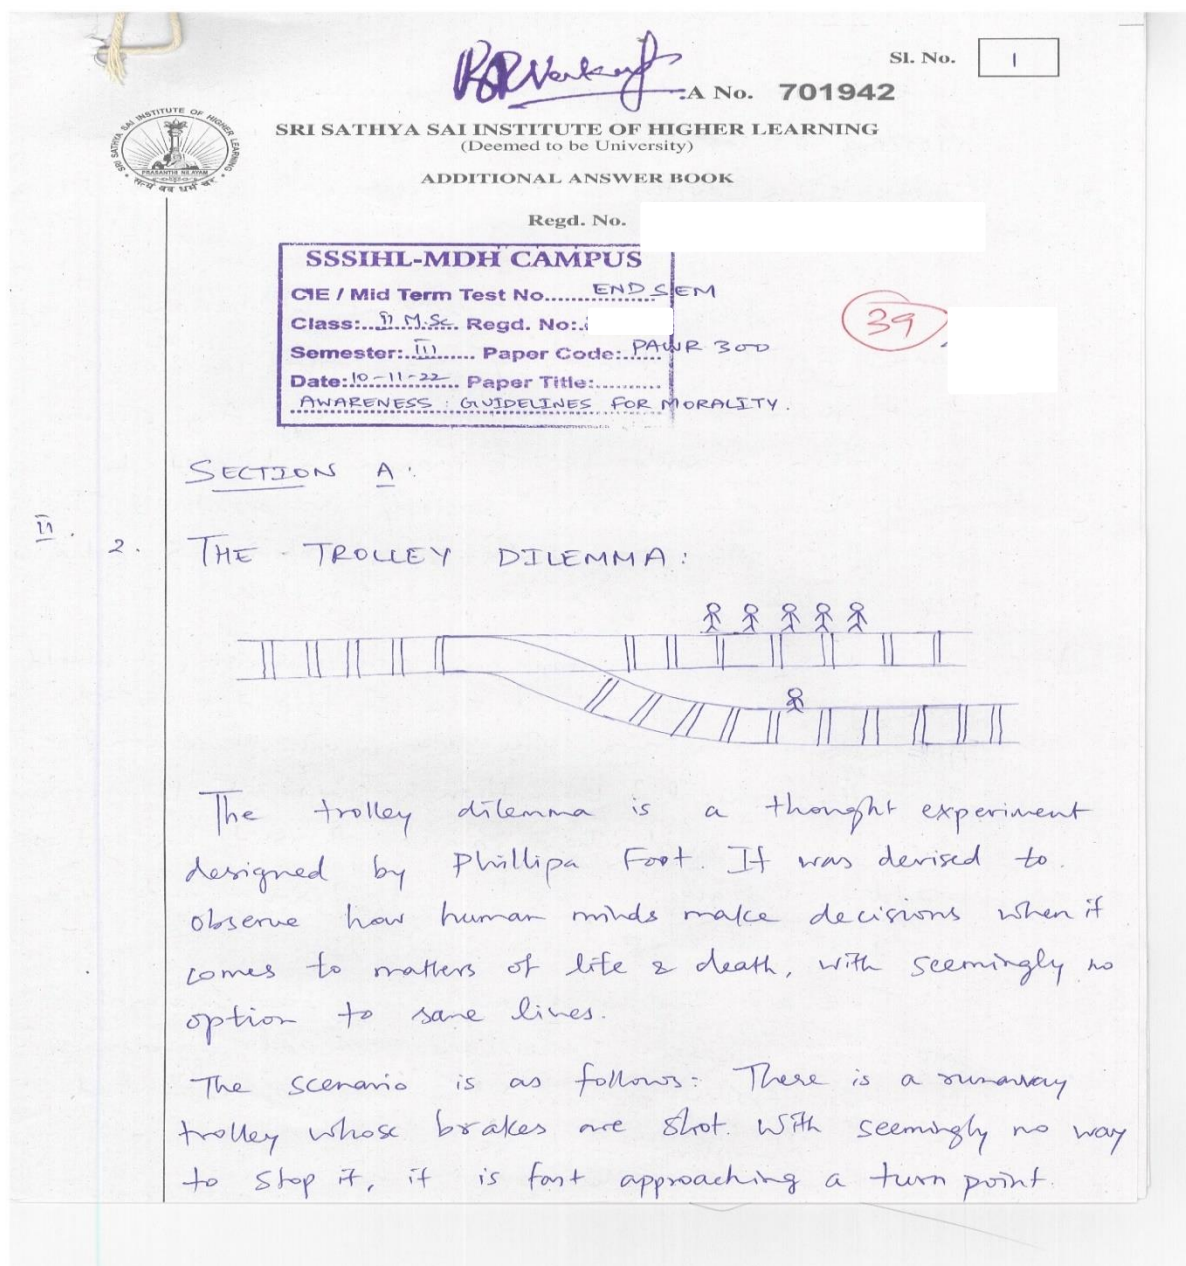 Sl. No. 1
A No. 701942
SRI SATHYA SAI INSTITUTE OF HIGHER LEARNING
(Deemed to be University)
SRI SATHYA SAI INSTITUTE OF HIGHER LEARNING
PRASANTHI NILAYAM
ADDITIONAL ANSWER BOOK
Regd. No.
SSSIHL-MDH CAMPUS
CIE / Mid Term Test No. END SEM
Class: II M.Sc. Regd. No:
39
Semester: III Paper Code: PAWR 300
Date: 10-11-22 Paper Title:
AWARENESS : GUIDELINES FOR MORALITY
SECTION A:
II. 2. THE TROLLEY DILEMMA:
The trolley dilemma is a thought experiment
designed by Phillipa Foot. It was devised to
observe how human minds make decisions when it
comes to matters of life & death, with seemingly no
option to save lives.
The scenario is as follows: There is a runaway
trolley whose brakes are shot. With seemingly no way
to stop it, it is fast approaching a turn point.